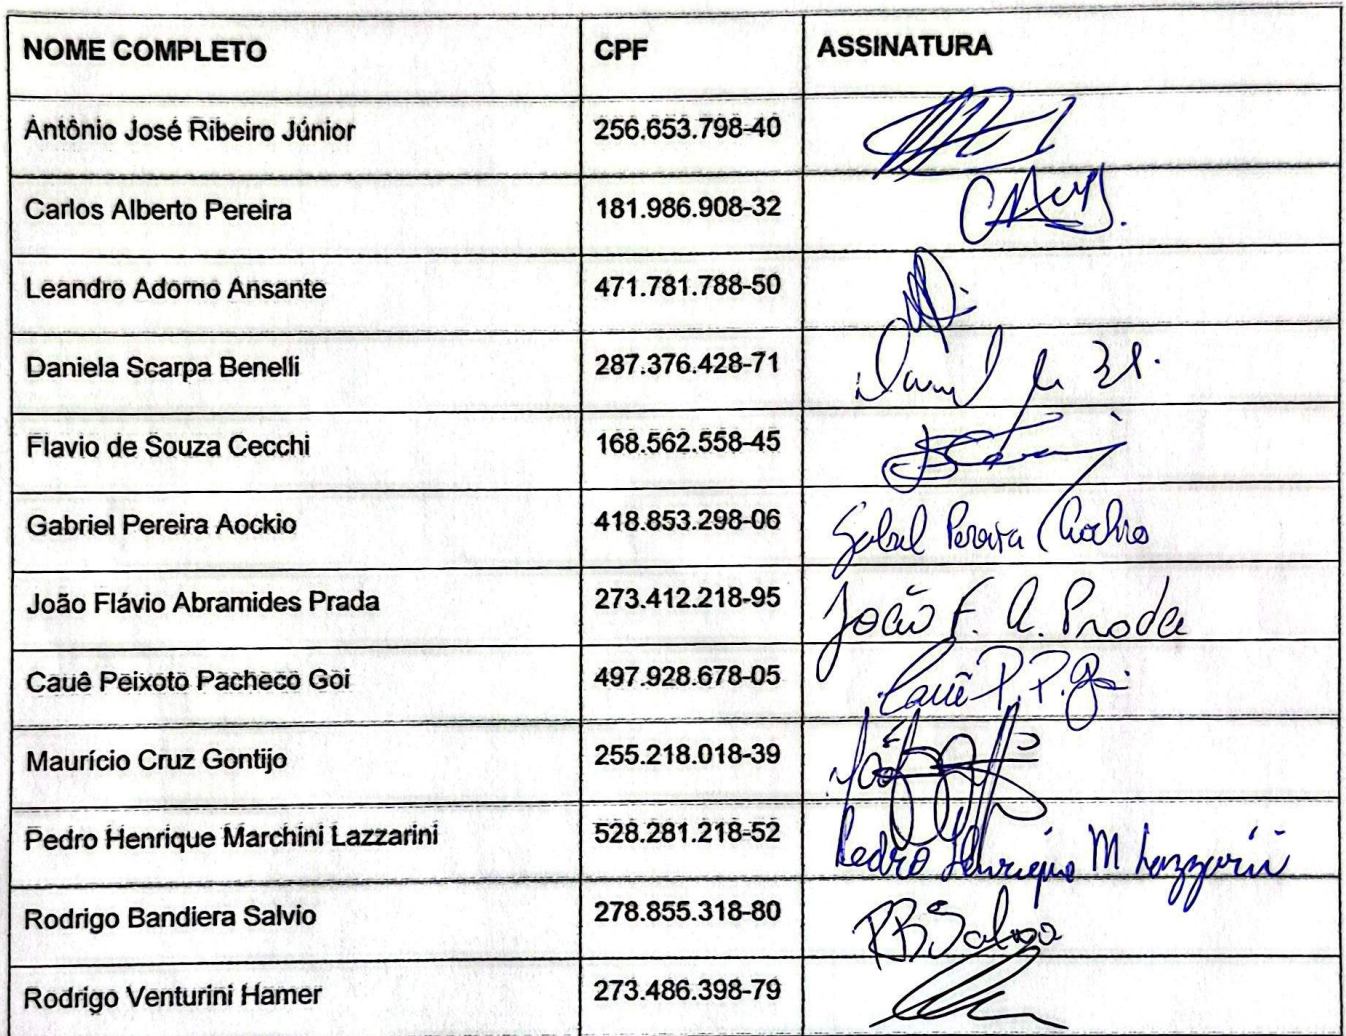 NOME COMPLETO CPF ASSINATURA
Antônio José Ribeiro Júnior 256.653.798-40
Carlos Alberto Pereira 181.986.908-32
Leandro Adorno Ansante 471.781.788-50
Daniela Scarpa Benelli 287.376.428-71
Flavio de Souza Cecchi 168.562.558-45
Gabriel Pereira Aockio 418.853.298-06 Gabriel Pereira Aockio
João Flávio Abramides Prada 273.412.218-95 João F. A. Prada
Cauê Peixoto Pacheco Goi 497.928.678-05 Cauê P. P. Goi
Maurício Cruz Gontijo 255.218.018-39
Pedro Henrique Marchini Lazzarini 528.281.218-52 Pedro Henrique M Lazzarini
Rodrigo Bandiera Salvio 278.855.318-80 RBSalvio
Rodrigo Venturini Hamer 273.486.398-79